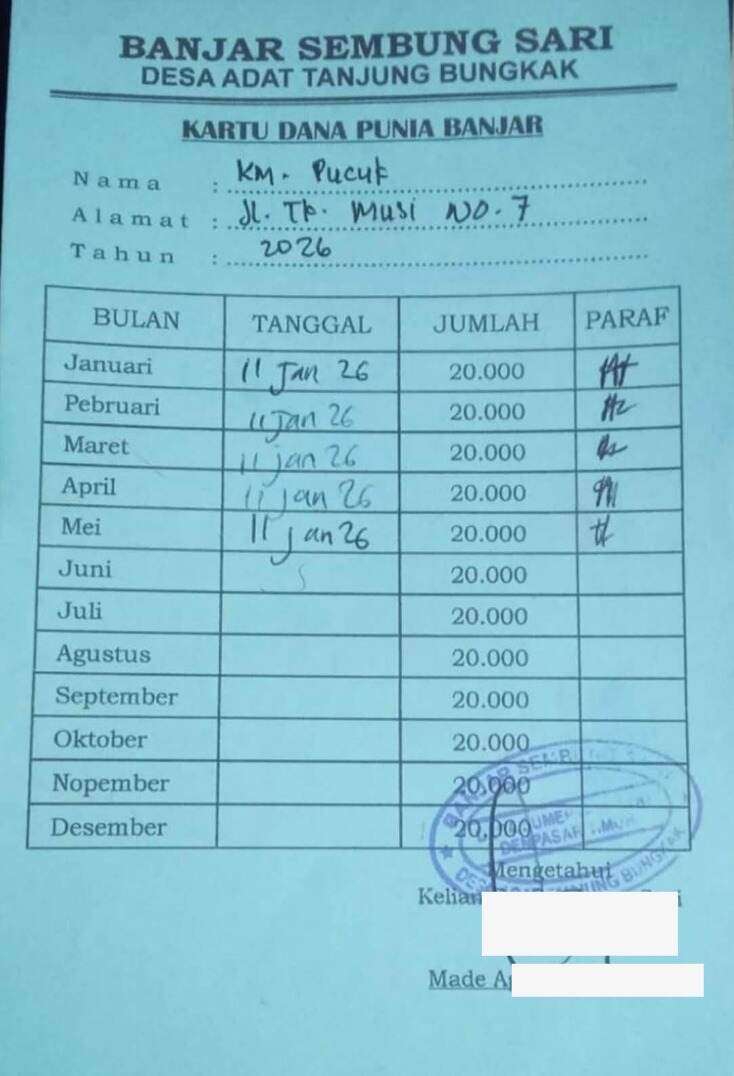 BANJAR SEMBUNG SARI
DESA ADAT TANJUNG BUNGKAK
KARTU DANA PUNIA BANJAR
Nama : KM. Pucuk
Alamat : Jl. Tk. Musi NO. 7
Tahun : 2026
BULAN TANGGAL JUMLAH PARAF
Januari 11 Jan 26 20.000
Pebruari 11 Jan 26 20.000
Maret 11 jan 26 20.000
April 11 jan 26 20.000
Mei 11 jan 26 20.000
Juni 20.000
Juli 20.000
Agustus 20.000
September 20.000
Oktober 20.000
Nopember 20.000
Desember 20.000
BANJAR SEMB
DENPASAR
BUNGKAK
Mengetahui
Kelian
Made